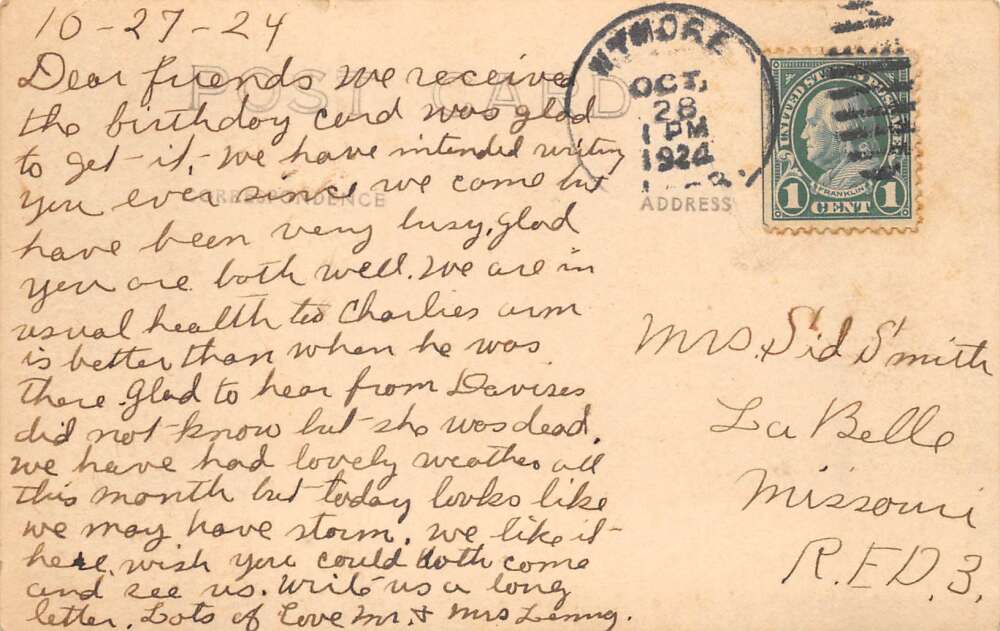 10-27-24
POST CARD
CORRESPONDENCE
ADDRESS
Dear friends we received
the birthday card was glad
to get it, we have intended writing
you ever since we came but
have been very busy, glad
you are both well. We are in
usual health too Charlies arm
is better than when he was
there. Glad to hear from Davises
did not know but she was dead.
we have had lovely weather all
this month but today looks like
we may have storm. we like it
here, wish you could both come
and see us. Write us a long
letter. Lots of Love Mr. & Mrs
WYMORE
OCT.
28
1 PM
1924
UNITED STATES POSTAGE
FRANKLIN
1 CENT 1
Mrs. Sid Smith
La Belle
Missouri
R.F.D. 3.